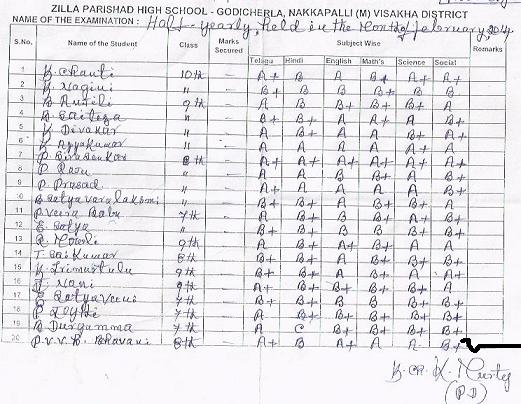 ZILLA PARISHAD HIGH SCHOOL - GODICHERLA, NAKKAPALLI (M) VISAKHA DISTRICT
NAME OF THE EXAMINATION : Half-yearly, held in the Month of february,
S.No. Name of the Student Class Marks Secured Subject Wise Remarks
Telugu Hindi English Math's Science Social
1 K. 10th — A+ B A B+ A+ A+
2 K. Nagini " — B B B B+ B B
3 B. 9th — A B B B+ B+ A
4 B. " — B+ B+ A A+ A B+
5 K. Divakar " — A B+ A A B+ A
6 K. Ayyakumar " — A B B A A B+
7 P. 8th — A+ A+ A+ A+ A+ A+
8 P. Raju " — A B+ A A A B+
9 P. Prasad " — A+ A A A A B+
10 B. Satyavaralakshmi " — B+ B+ A B+ A B+
11 P. Veera Babu 7th — A B B B+ A B+
12 E. Satya " — B+ B B A B+ B+
13 R. Mouli 9th — A B+ A+ B+ A A
14 T. Sai Kumar 8th — B+ B+ A B+ B+ B+
15 K. Srimurtulu 9th — B+ B+ A B+ A A+
16 N. Nani 9th — A+ B+ B+ B+ B+ A
17 E. Satyavani 7th — B+ B+ B B B+ B+
18 P. 7th — A B+ B+ B+ B+ B+
19 B. Durgamma 7th — A C B B+ B+ B+
20 P.V.V.B. Bhavani 8th — A+ B A+ A A B+
K. Murty
(P.D)